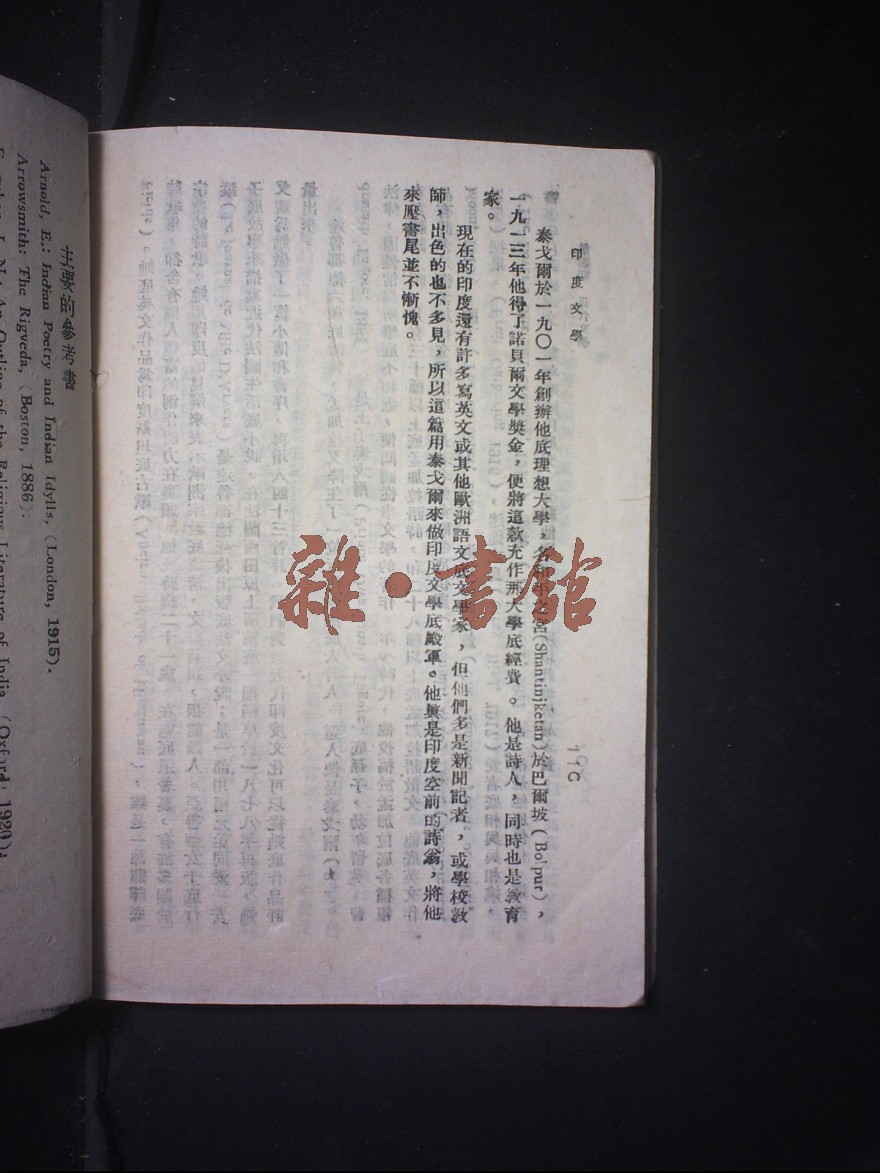 印度文學
一一〇
泰戈爾於一九〇一年創辦他底理想大學，名和平之宮(Shantiniketan)於巴爾坡(Bolpur)，
一九一三年他得了諾貝爾文學獎金，便將這款充作那大學底經費。他是詩人，同時也是教育
家。
現在的印度還有許多寫英文或其他歐洲語文底文學家，但他們多是新聞記者，或學校教
師，出色的也不多見，所以這篇用泰戈爾來做印度文學底殿軍。他真是印度空前的詩翁，將他
來壓書尾並不慚愧。
雜·書館
主要的參考書
Arnold, E.: Indian Poetry and Indian Idylls, (London, 1915).
Arrowsmith: The Rigveda, (Boston, 1886).
J. N.: An Outline of the Religious Literature of India (Oxford, 1920).